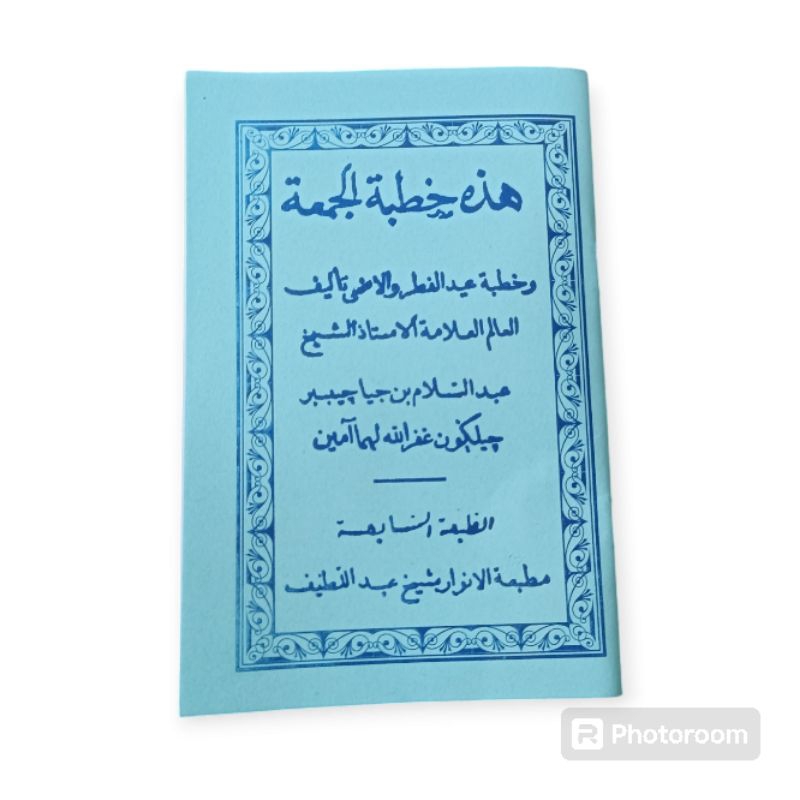 هذه خطبة الجمعة
وخطبة عيد الفطر والاضحى تأليف
العالم العلامة الاستاذ الشيخ
عبد السلام بن جيا چيبير
چيلڬون غفر الله لهما آمين
الطبعة السابعة
مطبعة الانوار بشيخ عبد اللطيف
Photoroom